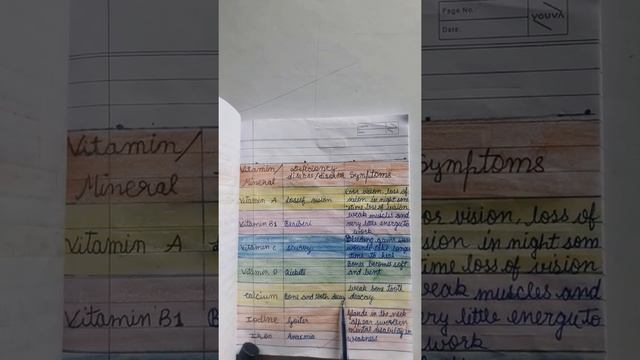 Page No.
Date:
youva
Vitamin/
Mineral
Vitamin A
Vitamin B1
Vitamin/ Deficiency
Mineral disease/disorder Symptoms
Vitamin A loss of vision Poor vision, loss of
vision in night som
time loss of vision
Vitamin B1 Beriberi weak muscles and
very little energy to
work
Vitamin C Scurvy Bleeding gums
wounds take longe
time to heal
Vitamin D Rickets Bones become soft
and bent
Calcium Bone and tooth decay weak bone tooth
deacay
Iodine Goiter Glands in the neck
appear swollen
mental disability in
Iron Anaemia weakness
Symptoms
or vision, loss of
sion in night som
time loss of vision
weak muscles and
ery little energy to
work